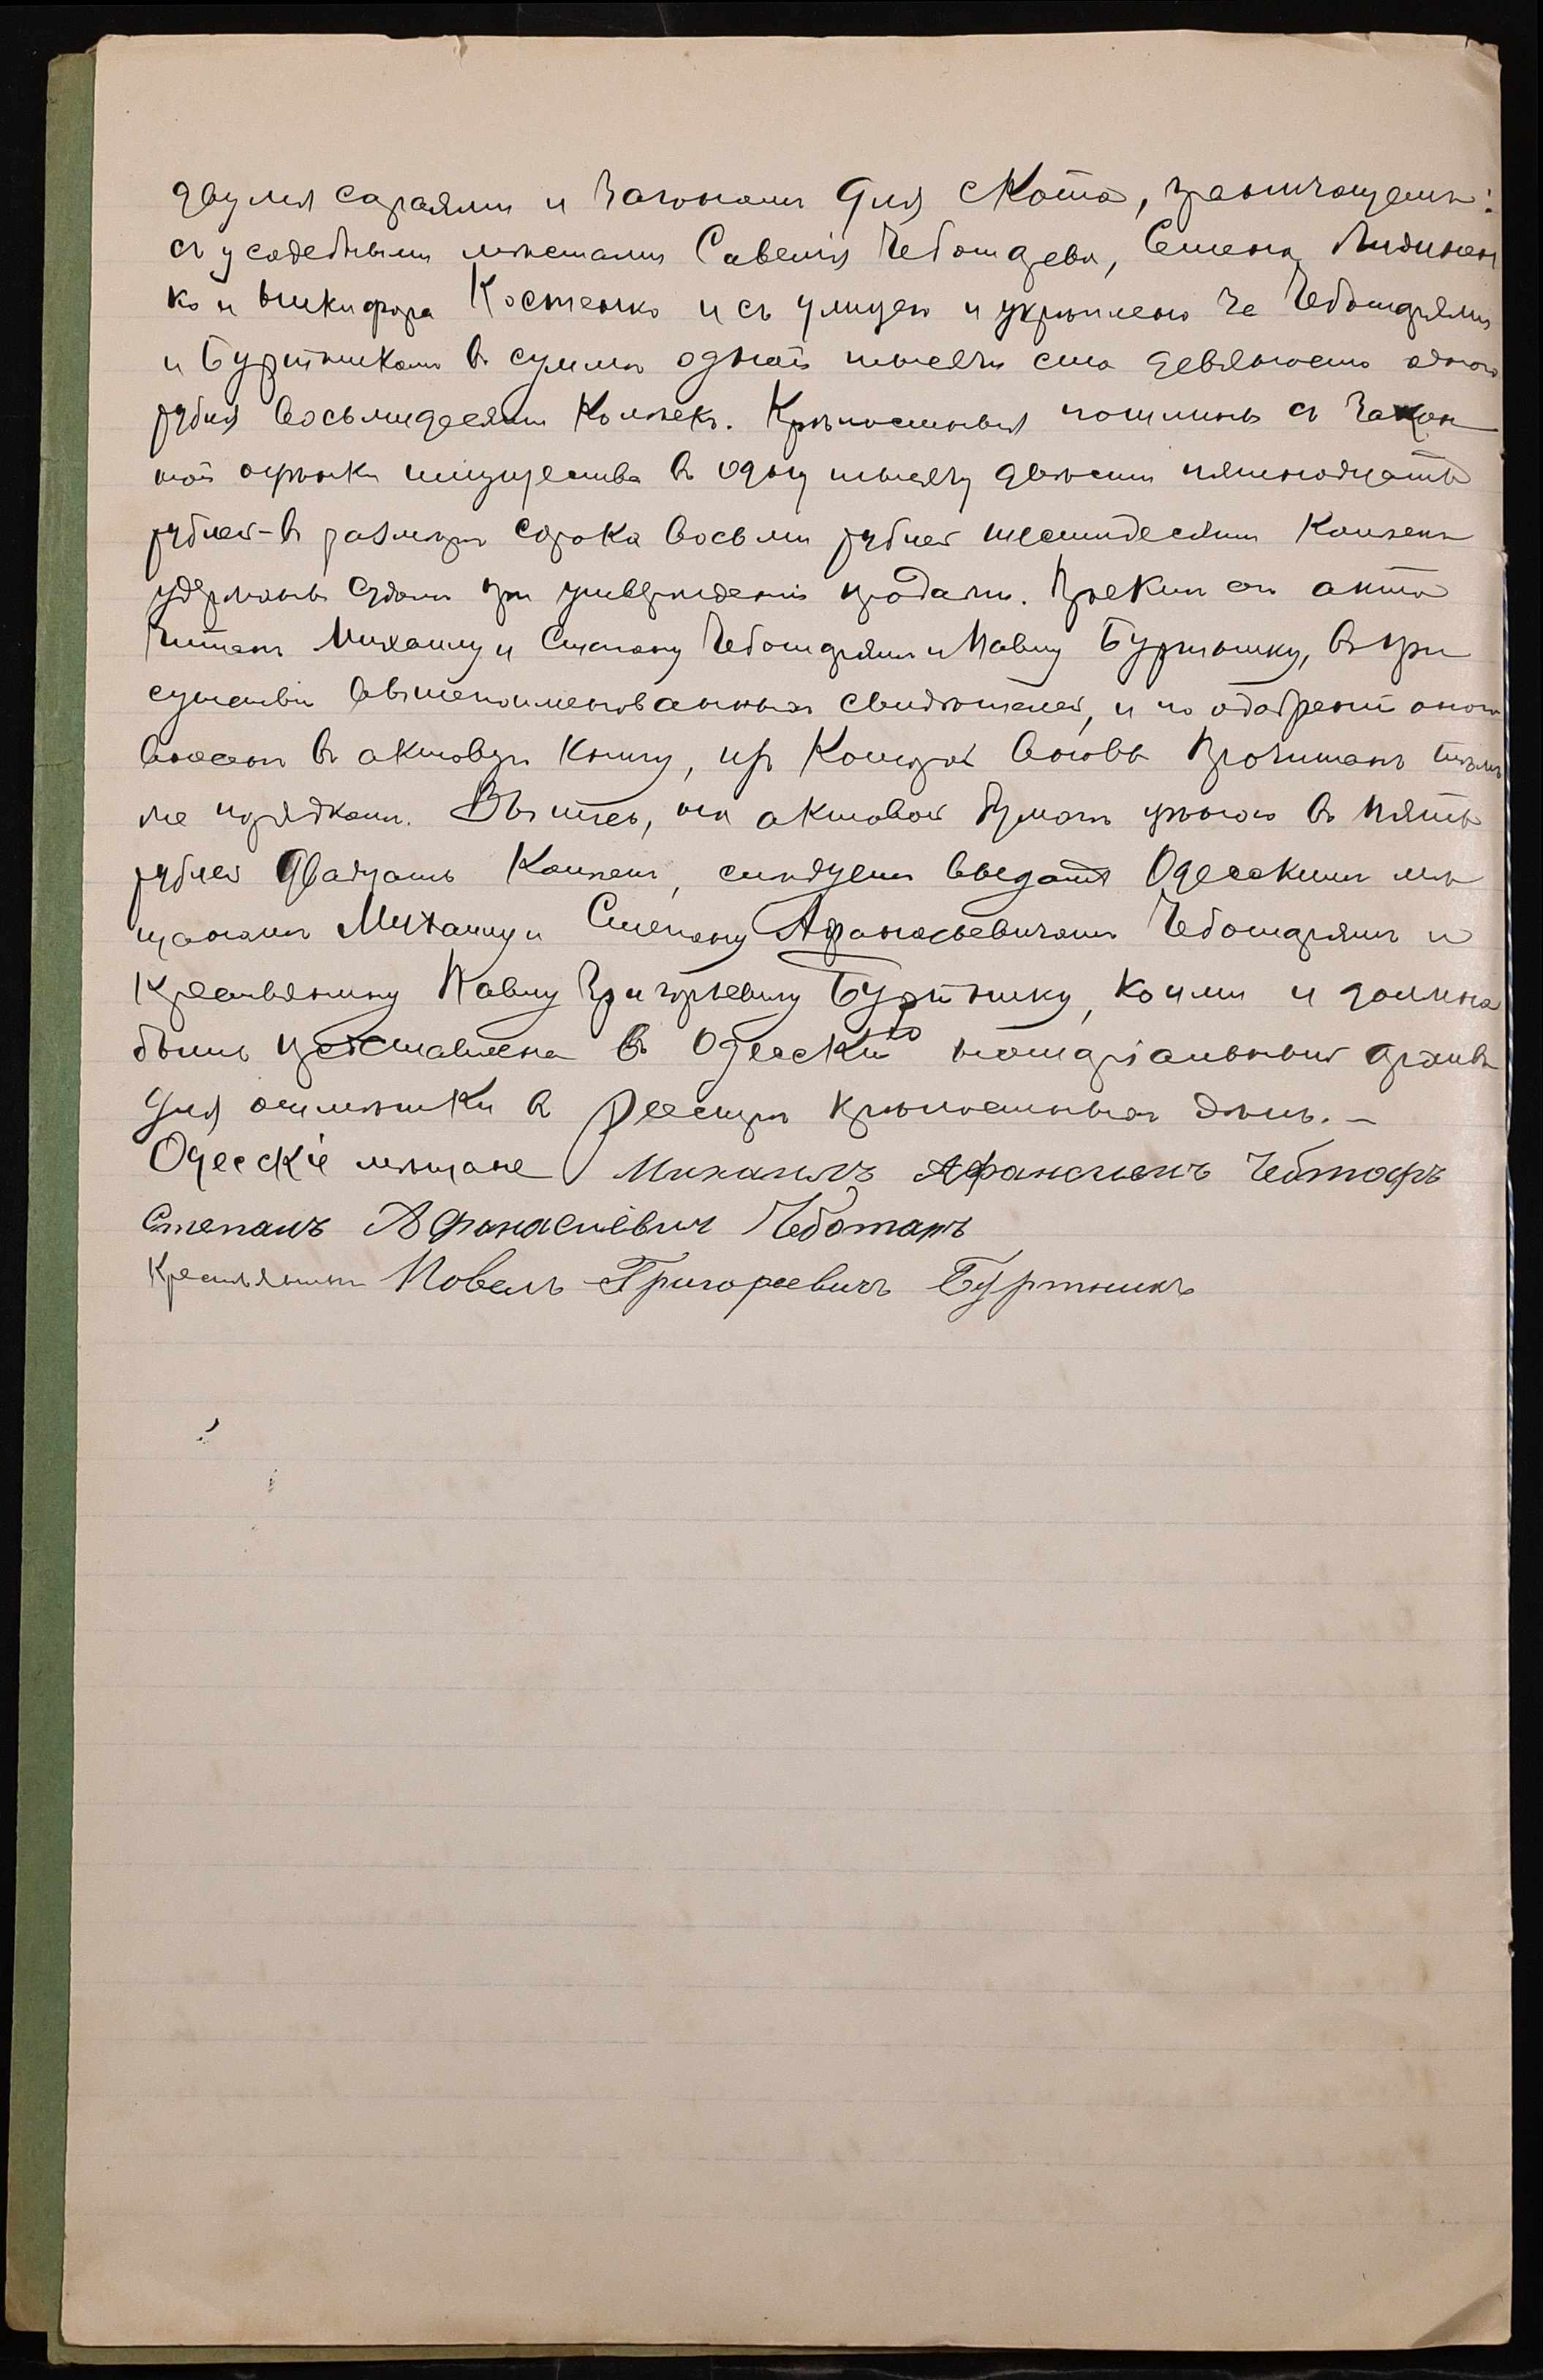 двумя сараями и загономъ для скота, граничащемъ:
съ усадебными мѣстами Савелія Чеботарева, Семена
ко и Никифора Костенко и съ улицею и укрѣплено за Чеботарями
и Буртникомъ въ суммѣ одной тысячи ста девяносто одного
рубля восьмидесяти копѣекъ. Крѣпостныя пошлины съ закон
ной оцѣнки имущества въ одну тысячу двѣсти пятнадцать
рублей - въ размѣрѣ сорока восьми рублей шестидесяти копѣекъ
удержаны судомъ при утвержденіи продажи. Проектъ сего акта
читанъ Михаилу и Степану Чеботарямъ и Павлу Буртнику, въ при
сутствіи вышепоименованныхъ свидѣтелей, и по одобреніи оного
внесенъ въ актовую книгу, изъ которой вновь прочитанъ тѣмъ
же порядкомъ. Выпись, на актовой бумагѣ цѣною въ пять
рублей двадцать копѣекъ, слѣдуетъ выдать Одесскимъ мѣ
щанамъ Михаилу и Степану Афанасьевичамъ Чеботарямъ и
крестьянину Павлу Григорьевичу Буртнику, коими и должна
быть представлена въ Одесскій нотаріальный архивъ
для отмѣтки въ реестрѣ крѣпостныхъ дѣлъ. –
Одесскіе мѣщане Михаилъ Чеботарь
Степанъ Чеботарь
Крестьянинъ Повелъ Григореевичъ Буртникъ